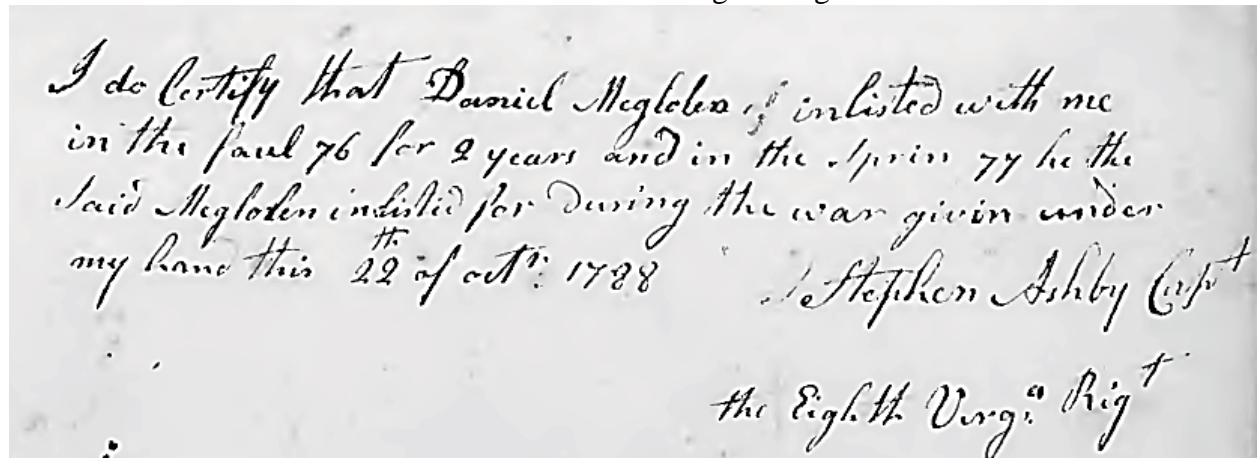 I do Certify that Daniel Megloten inlisted with me
in the faul 76 for 2 years and in the Sprin 77 he the
Said Megloten inlistid for During the war givin under
my hand this 22th of octr: 1788
Stephen Ashby Capt
the Eighth Virga Rigt